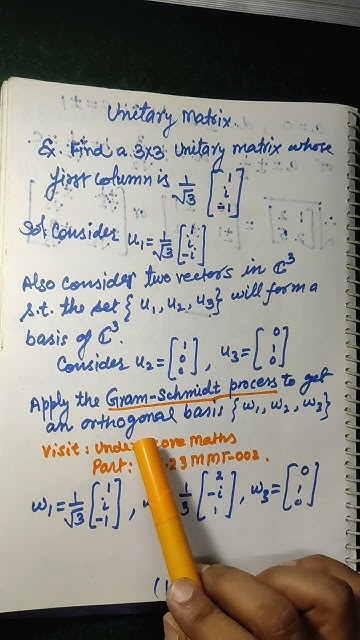 Unitary Matrix.
Ex. Find a 3×3 Unitary matrix whose
first column is 1/√3 [1 i -1]
Sol Consider u₁ = 1/√3 [1 i -1]
Also consider two vectors in ℂ³
s.t. the set {u₁, u₂, u₃} will form a
basis of ℂ³.
Consider u₂ = [1 0 0], u₃ = [0 1 0]
Apply the Gram-Schmidt process to get
an orthogonal basis {w₁, w₂, w₃}
Visit: Maths
Part: MMT-002.
w₁ = 1/√3 [1 i -1], 1/3 [2 -i 1], w₃ = [0 1 0]